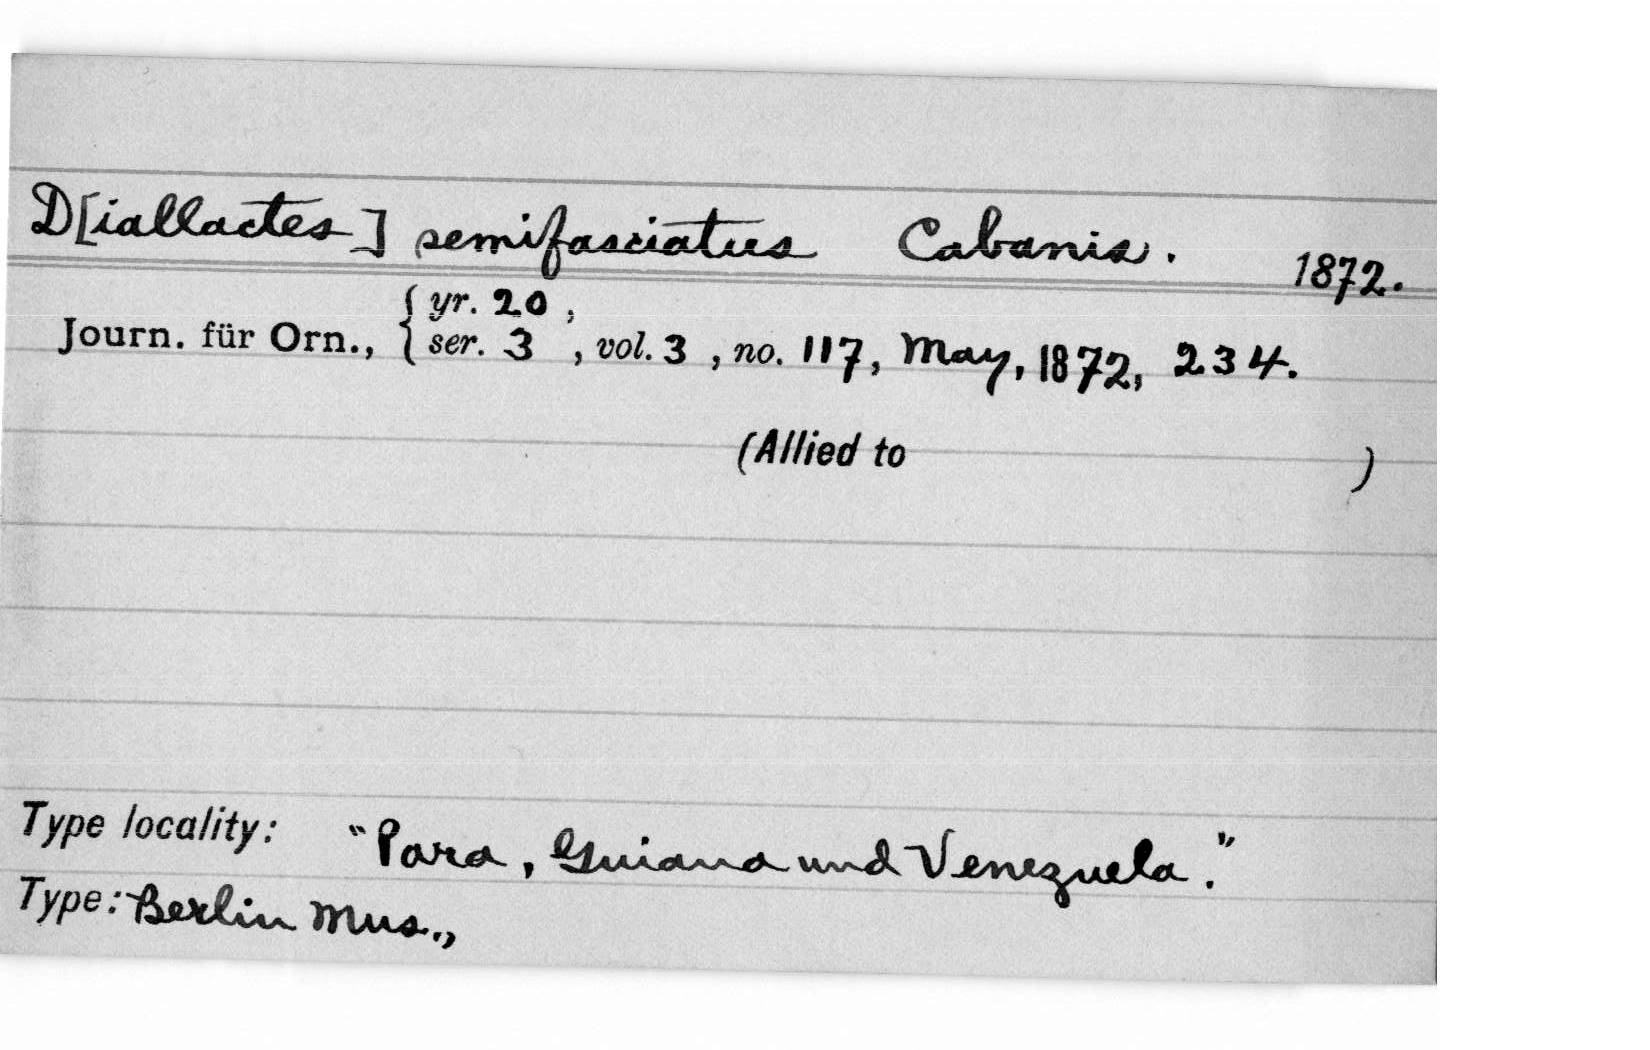 D[iallactes] semifasciatus Cabanis. 1872.
Journ. für Orn., { yr. 20 ,
ser. 3 , vol. 3 , no. 117, May, 1872, 234.
(Allied to )
Type locality: "Para, Guiana und Venezuela."
Type: Berlin Mus.,